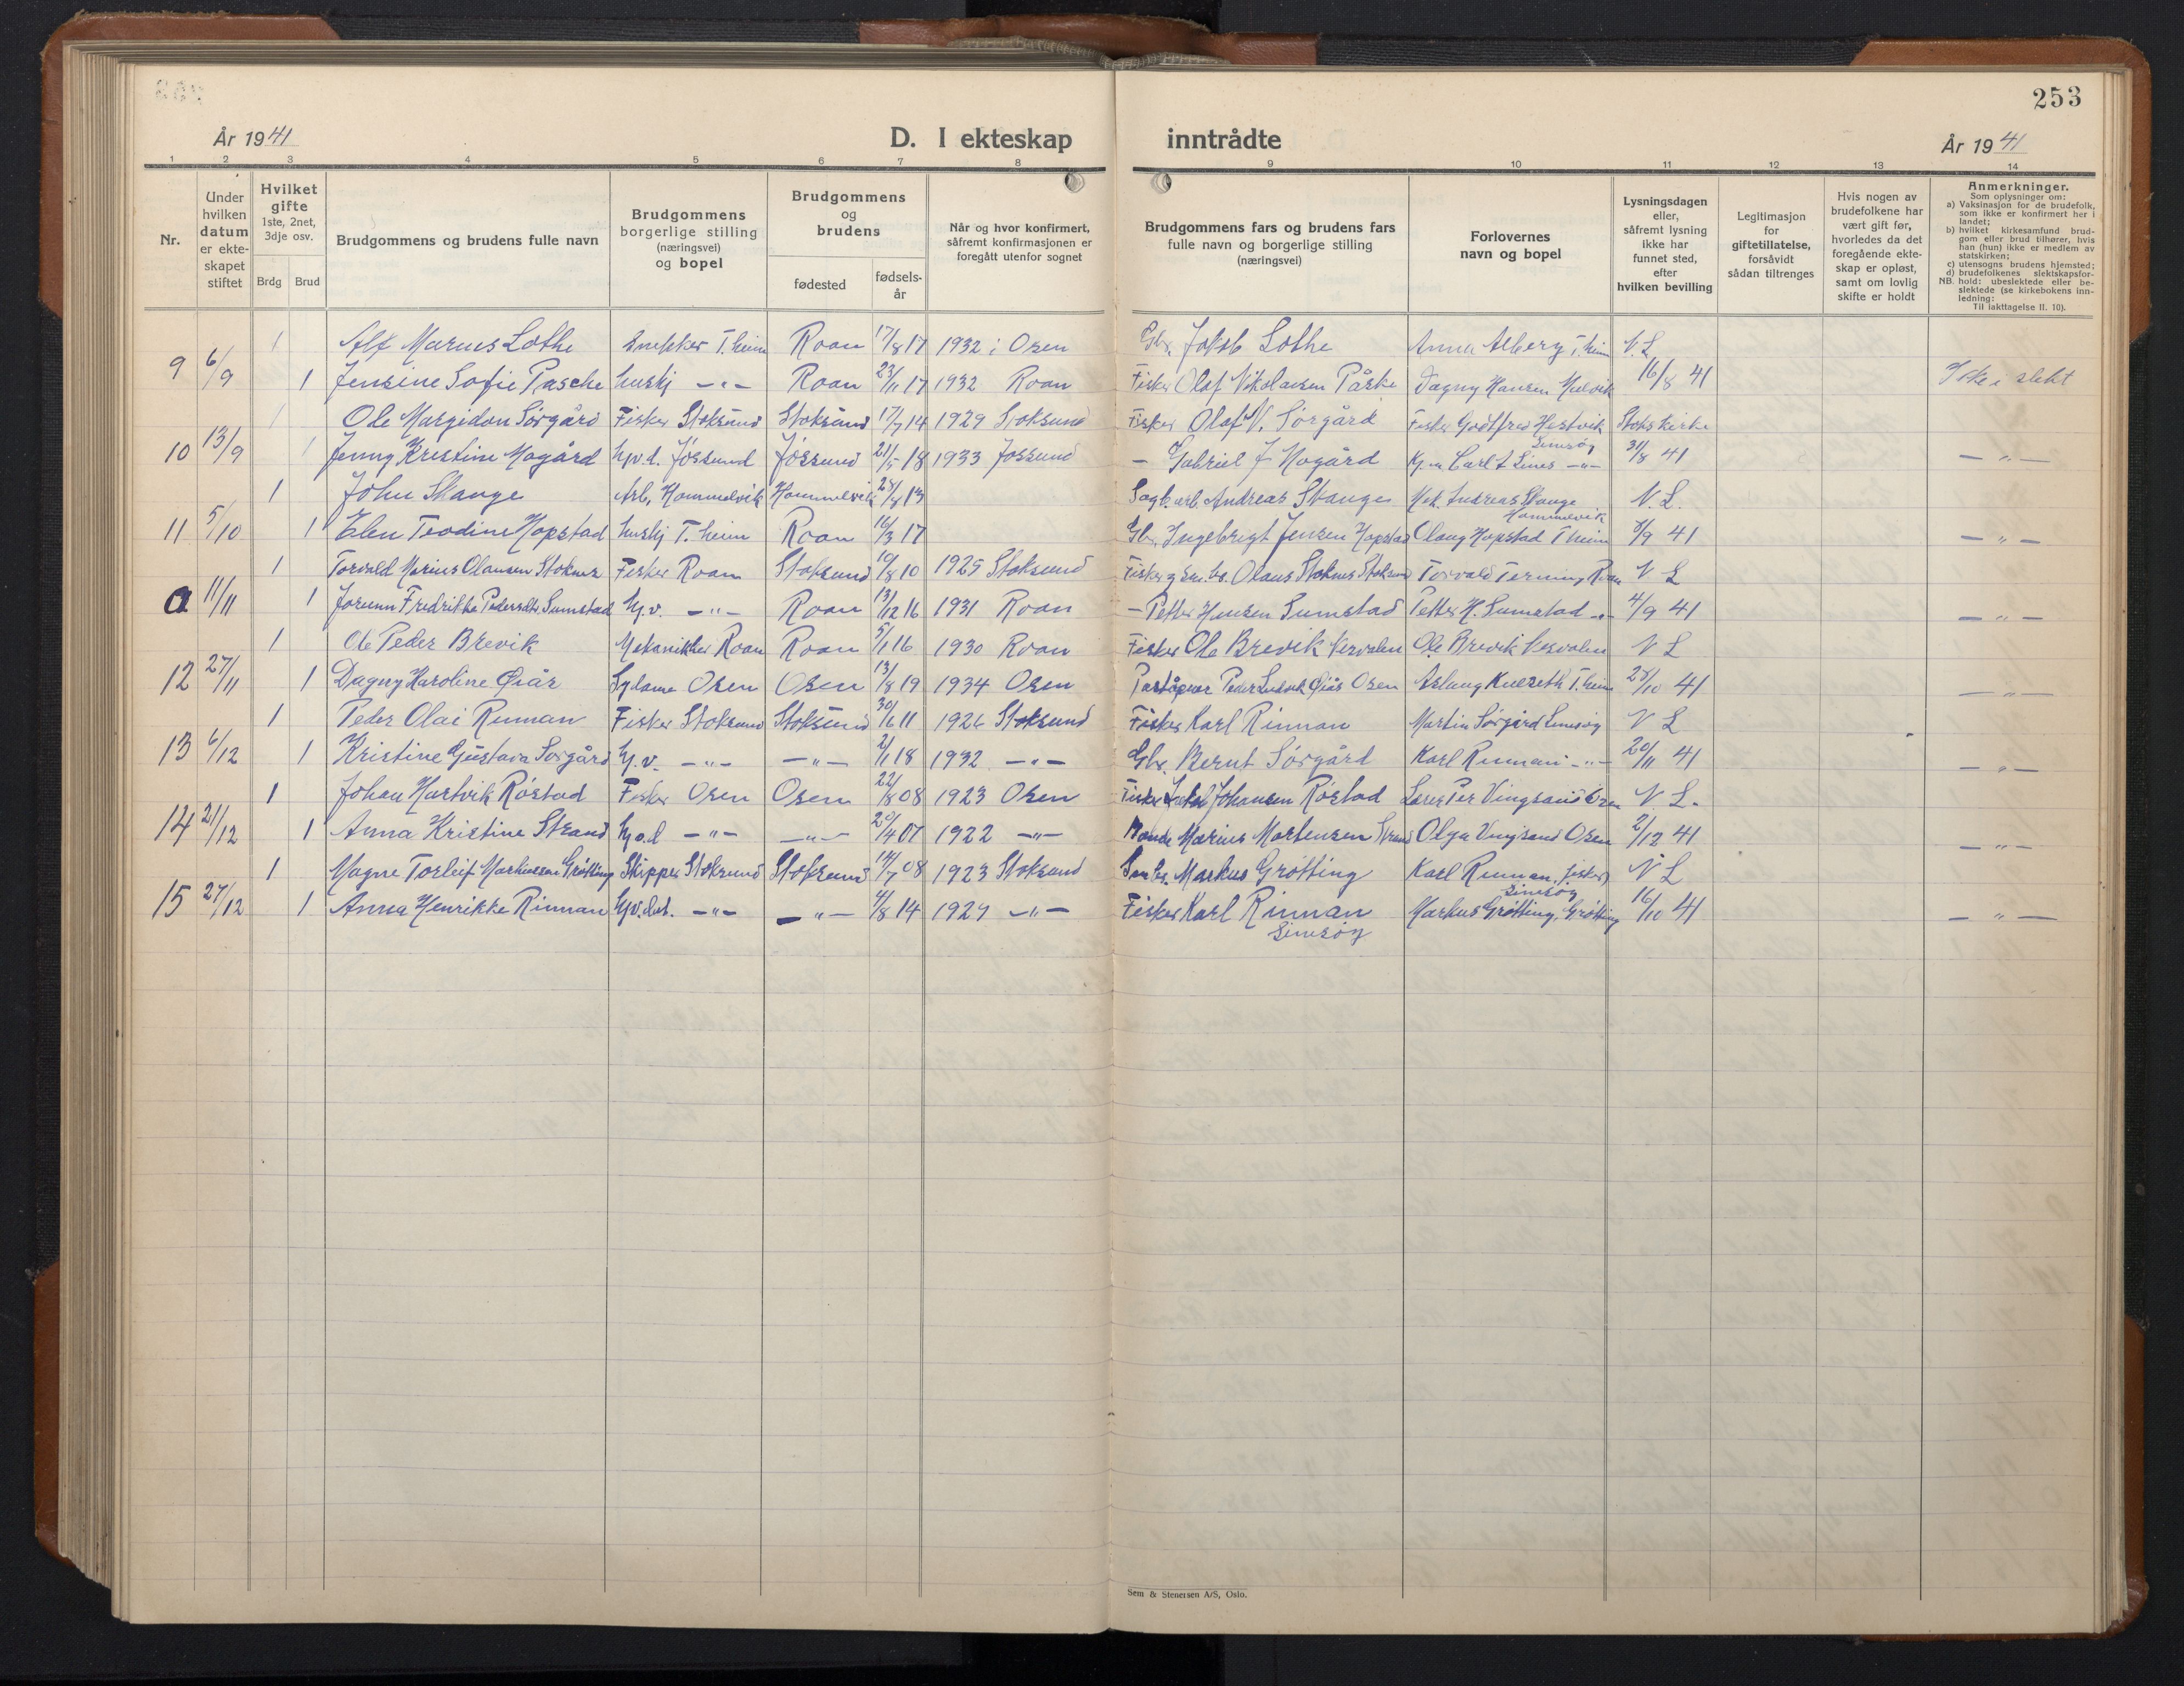 253
År 1941
D. I ekteskap inntrådte
År 1941
1 2 3 4 5 6 7 8 9 10 11 12 13 14
Nr.
Under
hvilken
datum
er ekte-
skapet
stiftet
Hvilket
gifte
1ste, 2net,
3dje osv.
Brdg Brud
Brudgommens og brudens fulle navn
Brudgommens
borgerlige stilling
(næringsvei)
og bopel
Brudgommens
og
brudens
fødested
fødsels-
år
Når og hvor konfirmert,
såfremt konfirmasjonen er
foregått utenfor sognet
Brudgommens fars og brudens fars
fulle navn og borgerlige stilling
(næringsvei)
Forlovernes
navn og bopel
Lysningsdagen
eller,
såfremt lysning
ikke har
funnet sted,
efter
hvilken bevilling
Legitimasjon
for
giftetillatelse,
forsåvidt
sådan tiltrenges
Hvis nogen av
brudefolkene har
vært gift før,
hvorledes da det
foregående ekte-
skap er opløst,
samt om lovlig
skifte er holdt
Anmerkninger.
Som oplysninger om:
a) Vaksinasjon for de brudefolk,
som ikke er konfirmert her i
landet;
b) hvilket kirkesamfund brud-
gom eller brud tilhører, hvis
han (hun) ikke er medlem av
statskirken;
c) utensogns brudens hjemsted;
d) brudefolkenes slektskapsfor-
NB. hold: ubeslektede eller be-
slektede (se kirkebokens inn-
ledning:
Til iakttagelse II. 10).
1 Alf Marius Lothe Snekker T.heim Roan 17/8 17 1932 i Osen Gbr. Jakob Lothe Anna Alberg T.heim V.L
9 6/9 1 Jensine Sofie Pasche huslj -"- Roan 23/11 17 1932 Roan Fisker Olaf Nikolaisen Påske Dagny Hansen 16/8 41 Ikke i slekt
1 Ole Margidon Sørgård Fisker Stoksund Stoksund 17/7 14 1929 Stoksund Fisker Olaf V. Sørgård Fisker Godtfred Hestvik Stoks kirke
10 13/9 1 Jenny Kristine Mogård hv.d. Jøssund Jøssund 21/5 18 1933 Jøssund - Gabriel J Mogård Carl L Lines -"- Linesøy 31/8 41 -"-
1 John Stange Arb. Hommelvik Hommelvik 28/8 13 Sagb.arb. Andreas Stange Mek. Andreas Stange V.L.
Hommelvik
11 5/10 1 Elen Teodine Hopstad huslj T.heim Roan 16/3 17 Gbr. Ingebrigt Jensen Hopstad Olaug Hopstad T heim 8/9 41 -"-
1 Torvald Marius Olausen Stoknes Fisker Roan Stoksund 10/8 10 1925 Stoksund Fisker og Olaus Stoknes Stoksund Torvald Terning Roan V L
a 11/11 1 Jorunn Fredrikke Pedersdtr. Sumstad hj.v. -"- Roan 13/12 16 1931 Roan - Petter Hansen Sumstad Petter H. Sumstad -"- 4/9 41 -"-
1 Ole Peder Brevik Mekanikker Roan Roan 5/1 16 1930 Roan Fisker Ole Brevik Vesvalen Ole Brevik Vesvalen V L
12 27/11 1 Dagny Karoline Øiår Sydame Osen Osen 13/8 19 1934 Osen Poståpner Peder Ludvik Øiår Osen Aslaug T.heim 25/10 41 -"-
1 Peder Olai Rinnan Fisker Stoksund Stoksund 30/6 11 1926 Stoksund Fisker Karl Rinnan Martin Sørgård Linesøy V L
13 6/12 1 Kristine Gustava Sørgård hj.v. -"- -"- 2/1 18 1932 -"- Gbr. Bernt Sørgård Karl Rinnan -"- 20/11 41 -"-
1 Johan Hartvik Røstad Fisker Osen Osen 22/8 08 1923 Osen Fisker Johansen Røstad Vingsand Osen V.L.
14 21/12 1 Anna Kristine Strand hv.d -"- -"- 20/4 07 1922 -"- Marius Martensen Strand Olga Vingsand Osen 2/12 41 -"-
1 Magne Torleif Markussen Grøtting Skipper Stoksund Stoksund 14/7 08 1923 Stoksund Markus Grøtting Karl Rinnan, fisker V L
Linesøy
15 27/12 1 Anna Henrikke Rinnan -"- -"- 4/8 14 1929 -"- Fisker Karl Rinnan Markus Grøtting, Grøtting 16/10 41 -"-
Linesøy
Sem & Stenersen A/S, Oslo.